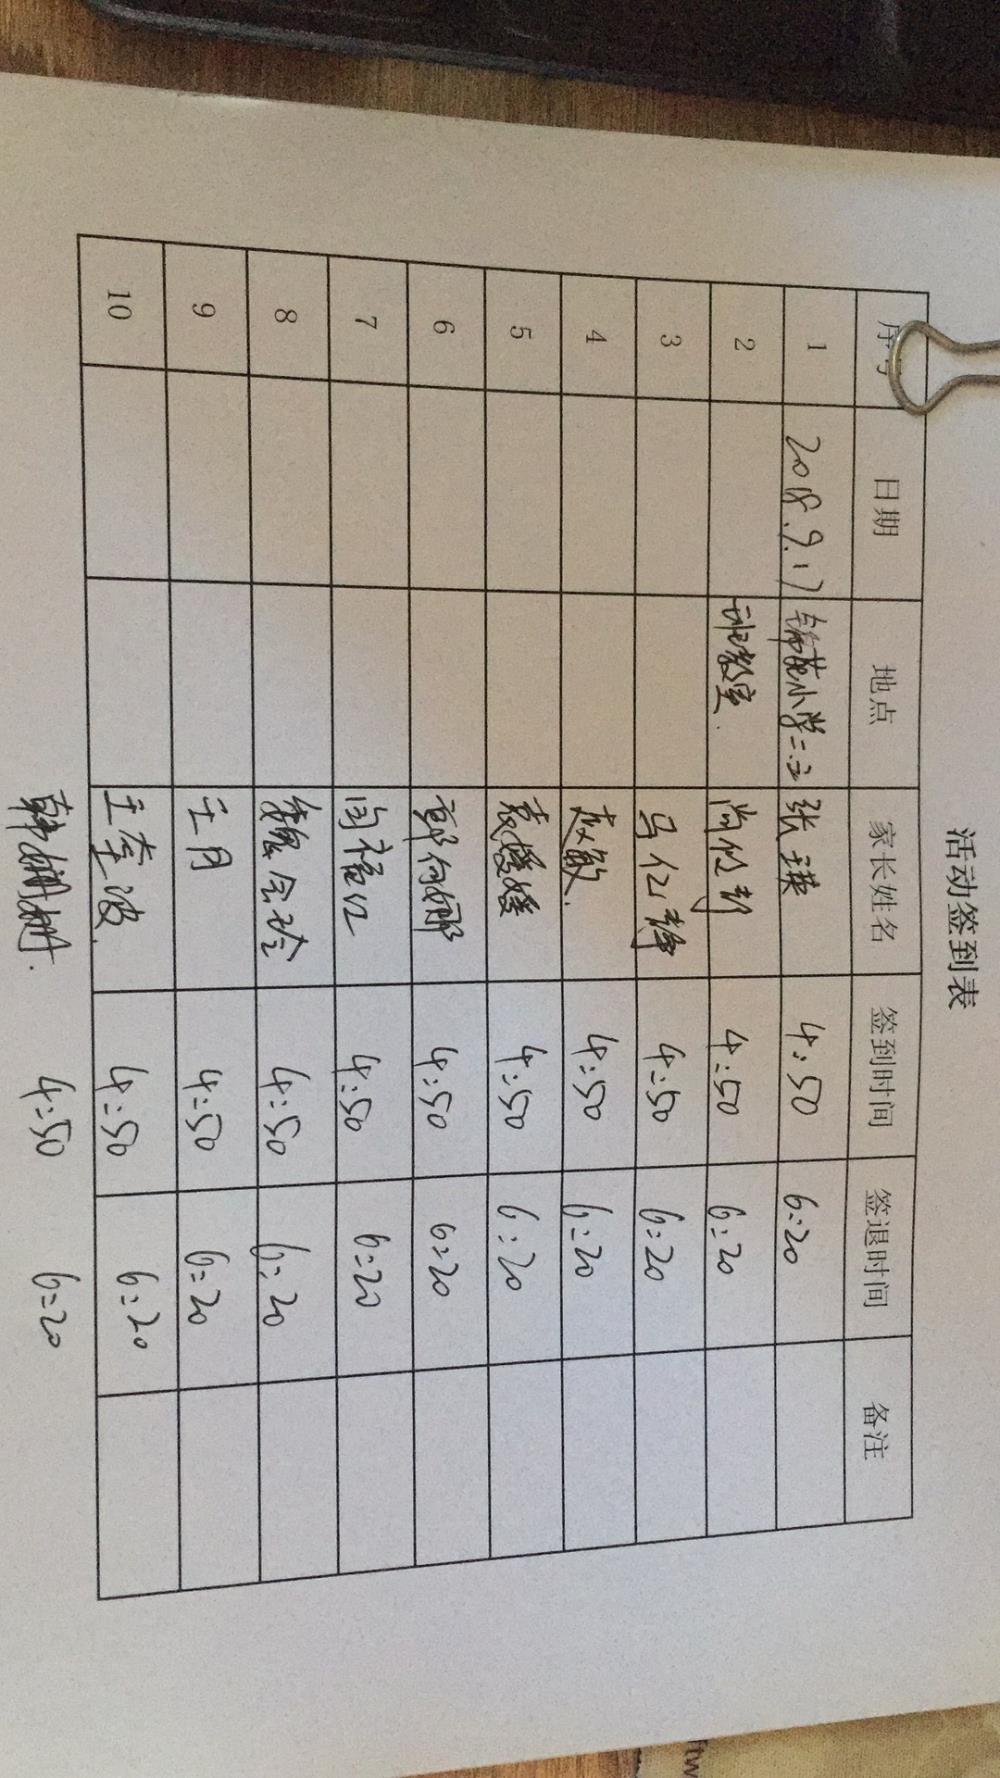 活动签到表
序号 日期 地点 家长姓名 签到时间 签退时间 备注
1 2018.9.17 锦苑小学二.2 张瑛 4:50 6:20
2 班教室. 4:50 6:20
3 4:50 6:20
4 赵敏. 4:50 6:20
5 袁媛媛 4:50 6:20
6 4:50 6:20
7 4:50 6:20
8 魏会玲 4:50 6:20
9 王月 4:50 6:20
10 王李波. 4:50 6:20
4:50 6:20
ftw